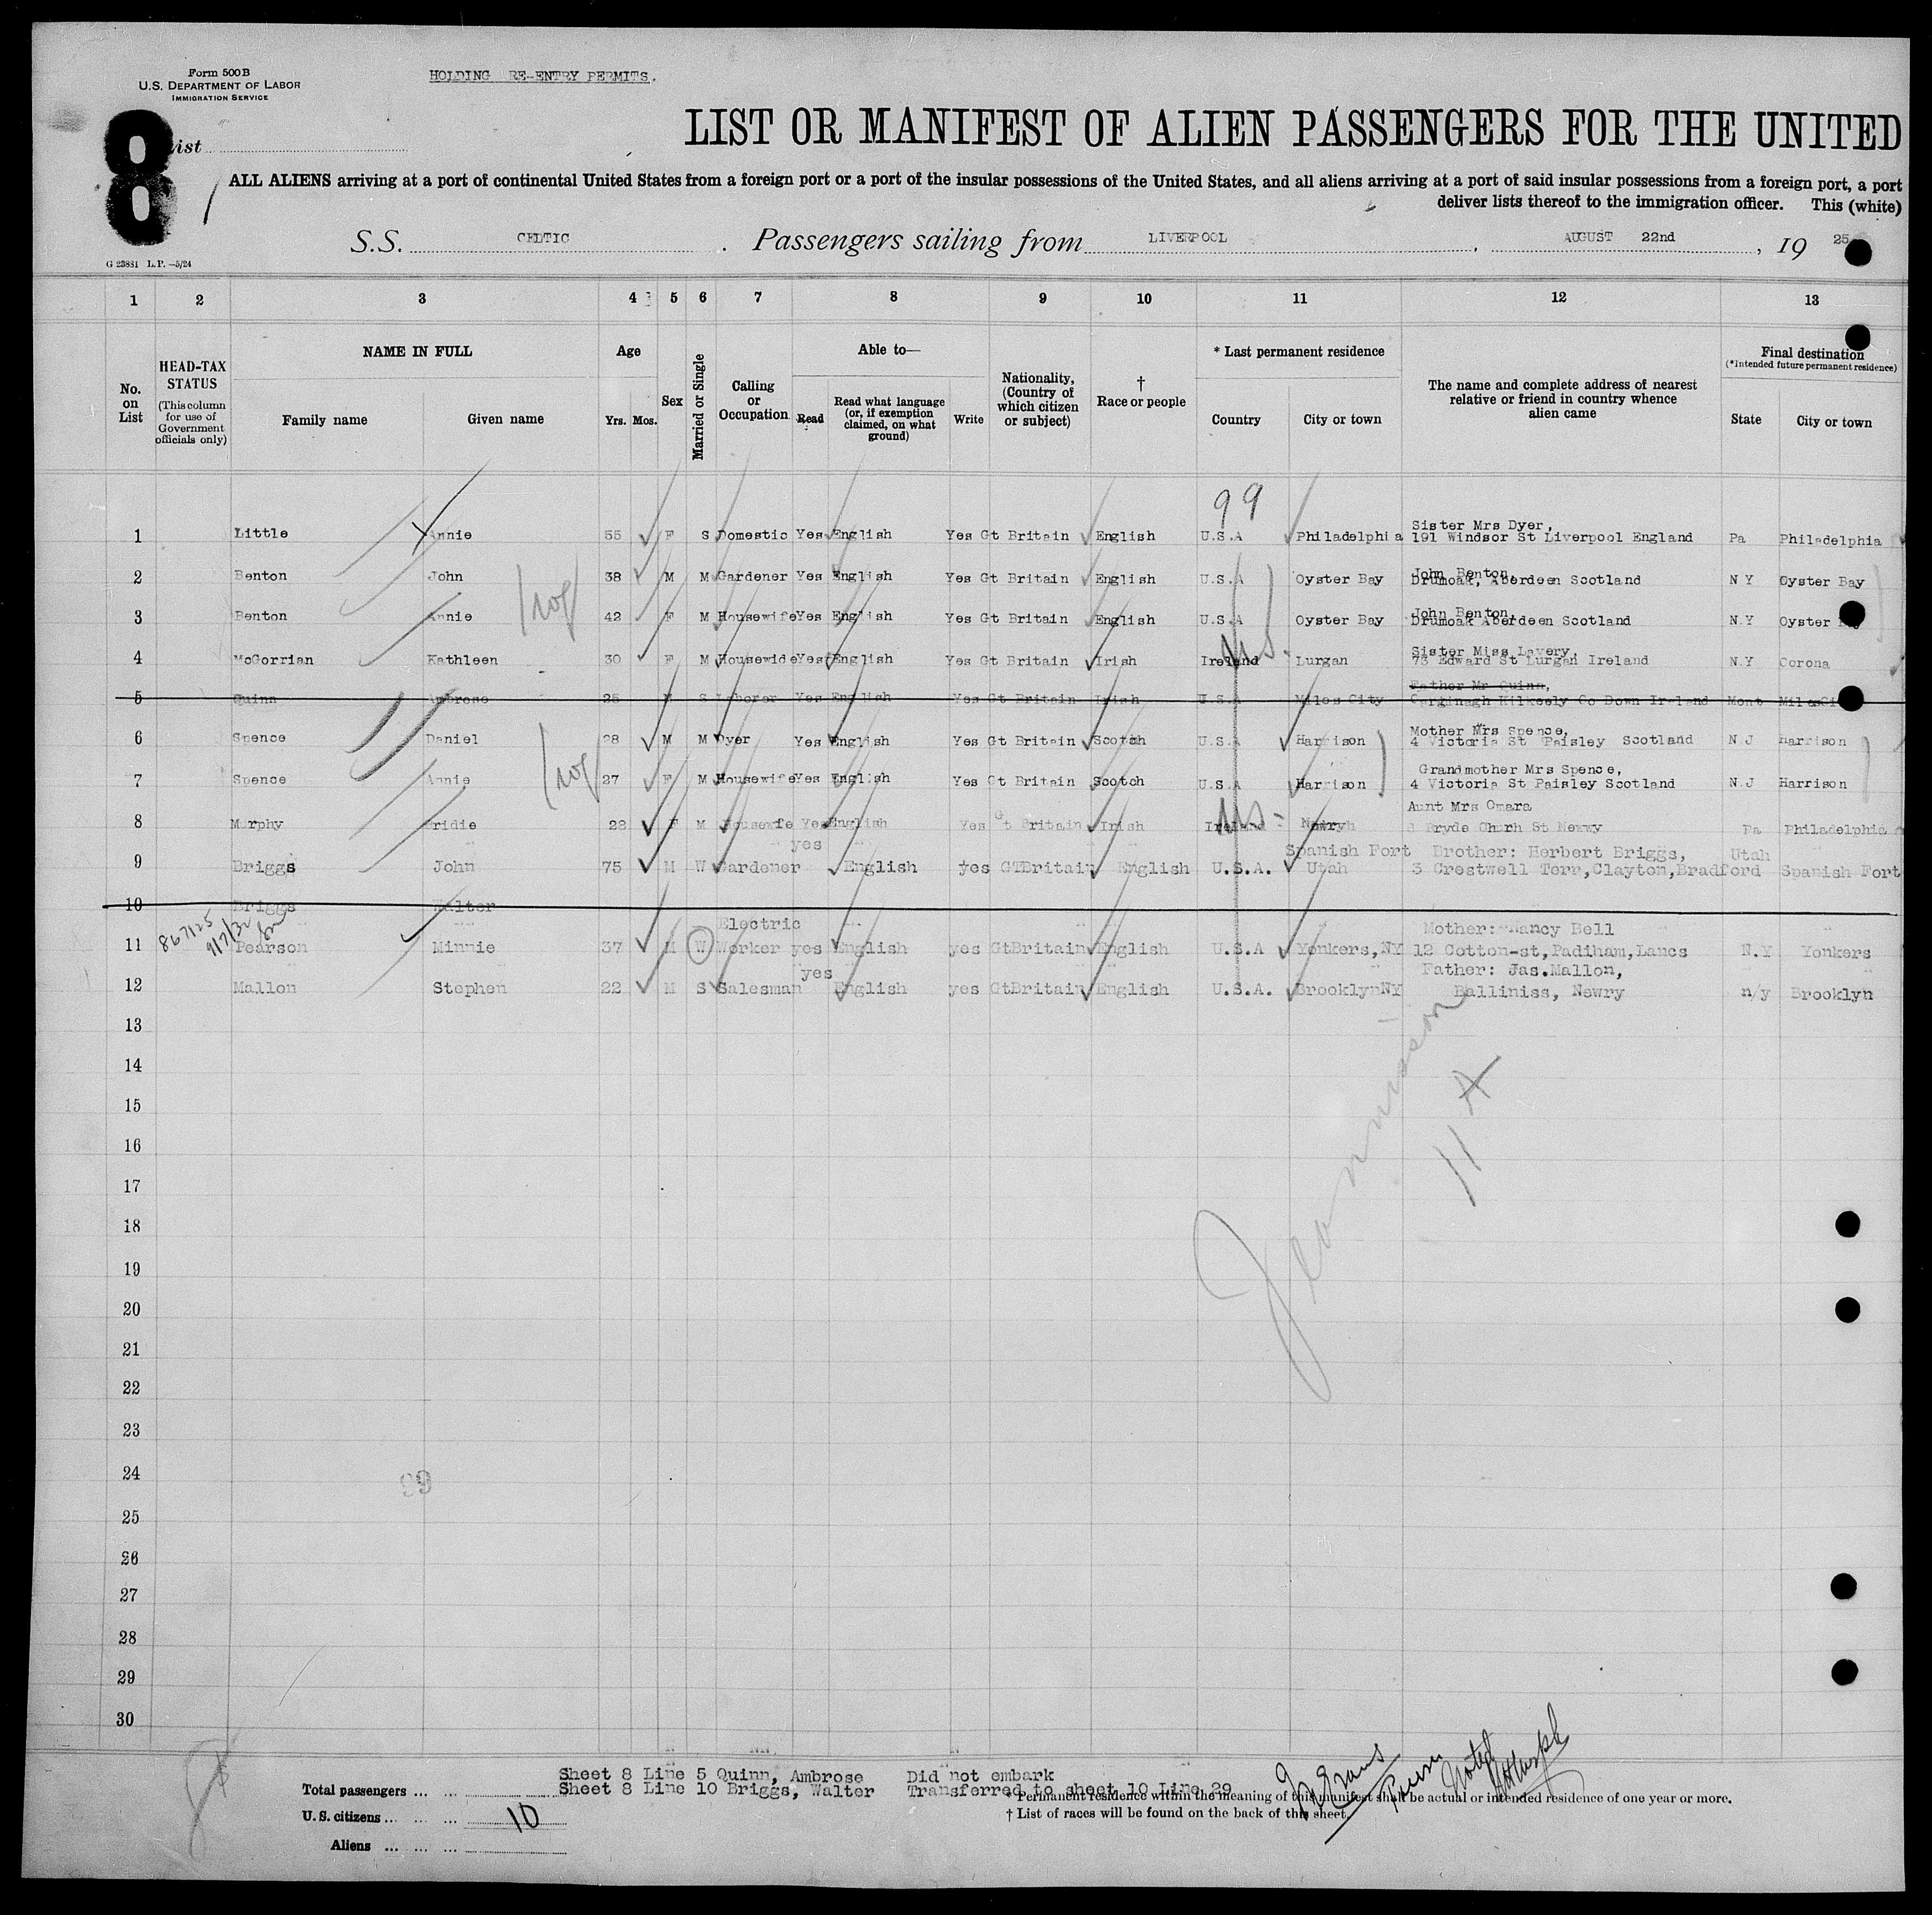 Form 500 B
U.S. DEPARTMENT OF LABOR
IMMIGRATION SERVICE
HOLDING RE-ENTRY PERMITS.
8
LIST OR MANIFEST OF ALIEN PASSENGERS FOR THE UNITED
ALL ALIENS arriving at a port of continental United States from a foreign port or a port of the insular possessions of the United States, and all aliens arriving at a port of said insular possessions from a foreign port, a port
deliver lists thereof to the immigration officer. This (white)
S.S. CEDTIC . Passengers sailing from LIVERPOOL , AUGUST 22nd , 19 25
G 23881 L.P. —5/24
1 2 3 4 5 6 7 8 9 10 11 12 13
No. on List
HEAD-TAX STATUS (This column for use of Government officials only)
NAME IN FULL
Family name Given name
Age
Yrs. Mos.
Sex
Married or Single
Calling or Occupation
Able to—
Read
Read what language (or, if exemption claimed, on what ground)
Write
Nationality, (Country of which citizen or subject)
† Race or people
* Last permanent residence
Country City or town
The name and complete address of nearest relative or friend in country whence alien came
Final destination
(*Intended future permanent residence)
State City or town
99
1 Little Annie 55 F S Domestic Yes English Yes Gt Britain English U.S.A Philadelphia Sister Mrs Dyer, 191 Windsor St Liverpool England Pa Philadelphia
2 Benton John 38 M M Gardener Yes English Yes Gt Britain English U.S.A Oyster Bay John Benton, Drumoak, Aberdeen Scotland N Y Oyster Bay
3 Benton Annie 42 F M Housewife Yes English Yes Gt Britain English U.S.A Oyster Bay John Benton, Drumoak Aberdeen Scotland N.Y Oyster Bay
4 McGorrian Kathleen 30 F M Housewide Yes English Yes Gt Britain Irish Ireland Lurgan Sister Miss Lavery, 73 Edward St Lurgan Ireland N.Y Corona
5 Quinn Ambrose 25 M S Laborer Yes English Yes Gt Britain Irish U.S.A Miles City Father Mr Quinn, Carginagh Kilkeely Co Down Ireland Mont Miles
6 Spence Daniel 28 M M Dyer Yes English Yes Gt Britain Scotch U.S.A Harrison Mother Mrs Spence, 4 Victoria St Paisley Scotland N J Harrison
7 Spence Annie 27 F M Housewife Yes English Yes Gt Britain Scotch U.S.A Harrison Grandmother Mrs Spence, 4 Victoria St Paisley Scotland N.J Harrison
8 Murphy Bridie 28 F M Housewife Yes English Yes Gt Britain Irish Ireland Aunt Mrs Omara Bryde Churh St Newwy Pa Philadelphia
9 Briggs John 75 M W Gardener yes English yes GTBritain English U.S.A. Spanish Fort Utah Brother: Herbert Briggs, 3 Crestwell Terr,Clayton,Bradford Utah Spanish Fort
10 Briggs Walter
867125 9/7/32
11 Pearson Minnie 37 M W Electric Worker yes English yes GtBritain English U.S.A Yonkers,NY Mother: Nancy Bell 12 Cotton-st,Padiham,Lancs N.Y Yonkers
12 Mallon Stephen 22 M S Salesman yes English yes GtBritain English U.S.A. BrooklynNY Father: Jas.Mallon, Balliniss, Newry n/y Brooklyn
13
14
15
16
17
18
19
20
21
22
23
24
25
26
27
28
29
30
Jeannison
11 A
99
Sheet 8 Line 5 Quinn, Ambrose Did not embark
Sheet 8 Line 10 Briggs, Walter Transferred to sheet 10 Line 29
Total passengers
U.S. citizens 10
Aliens
* Permanent residence within the meaning of this manifest shall be actual or intended residence of one year or more.
† List of races will be found on the back of this sheet.
Noted